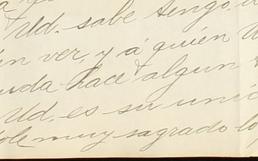 Ud. sabe tengo
ver, y á quién
hace algun
Ud. es su uni
muy sagrado lo